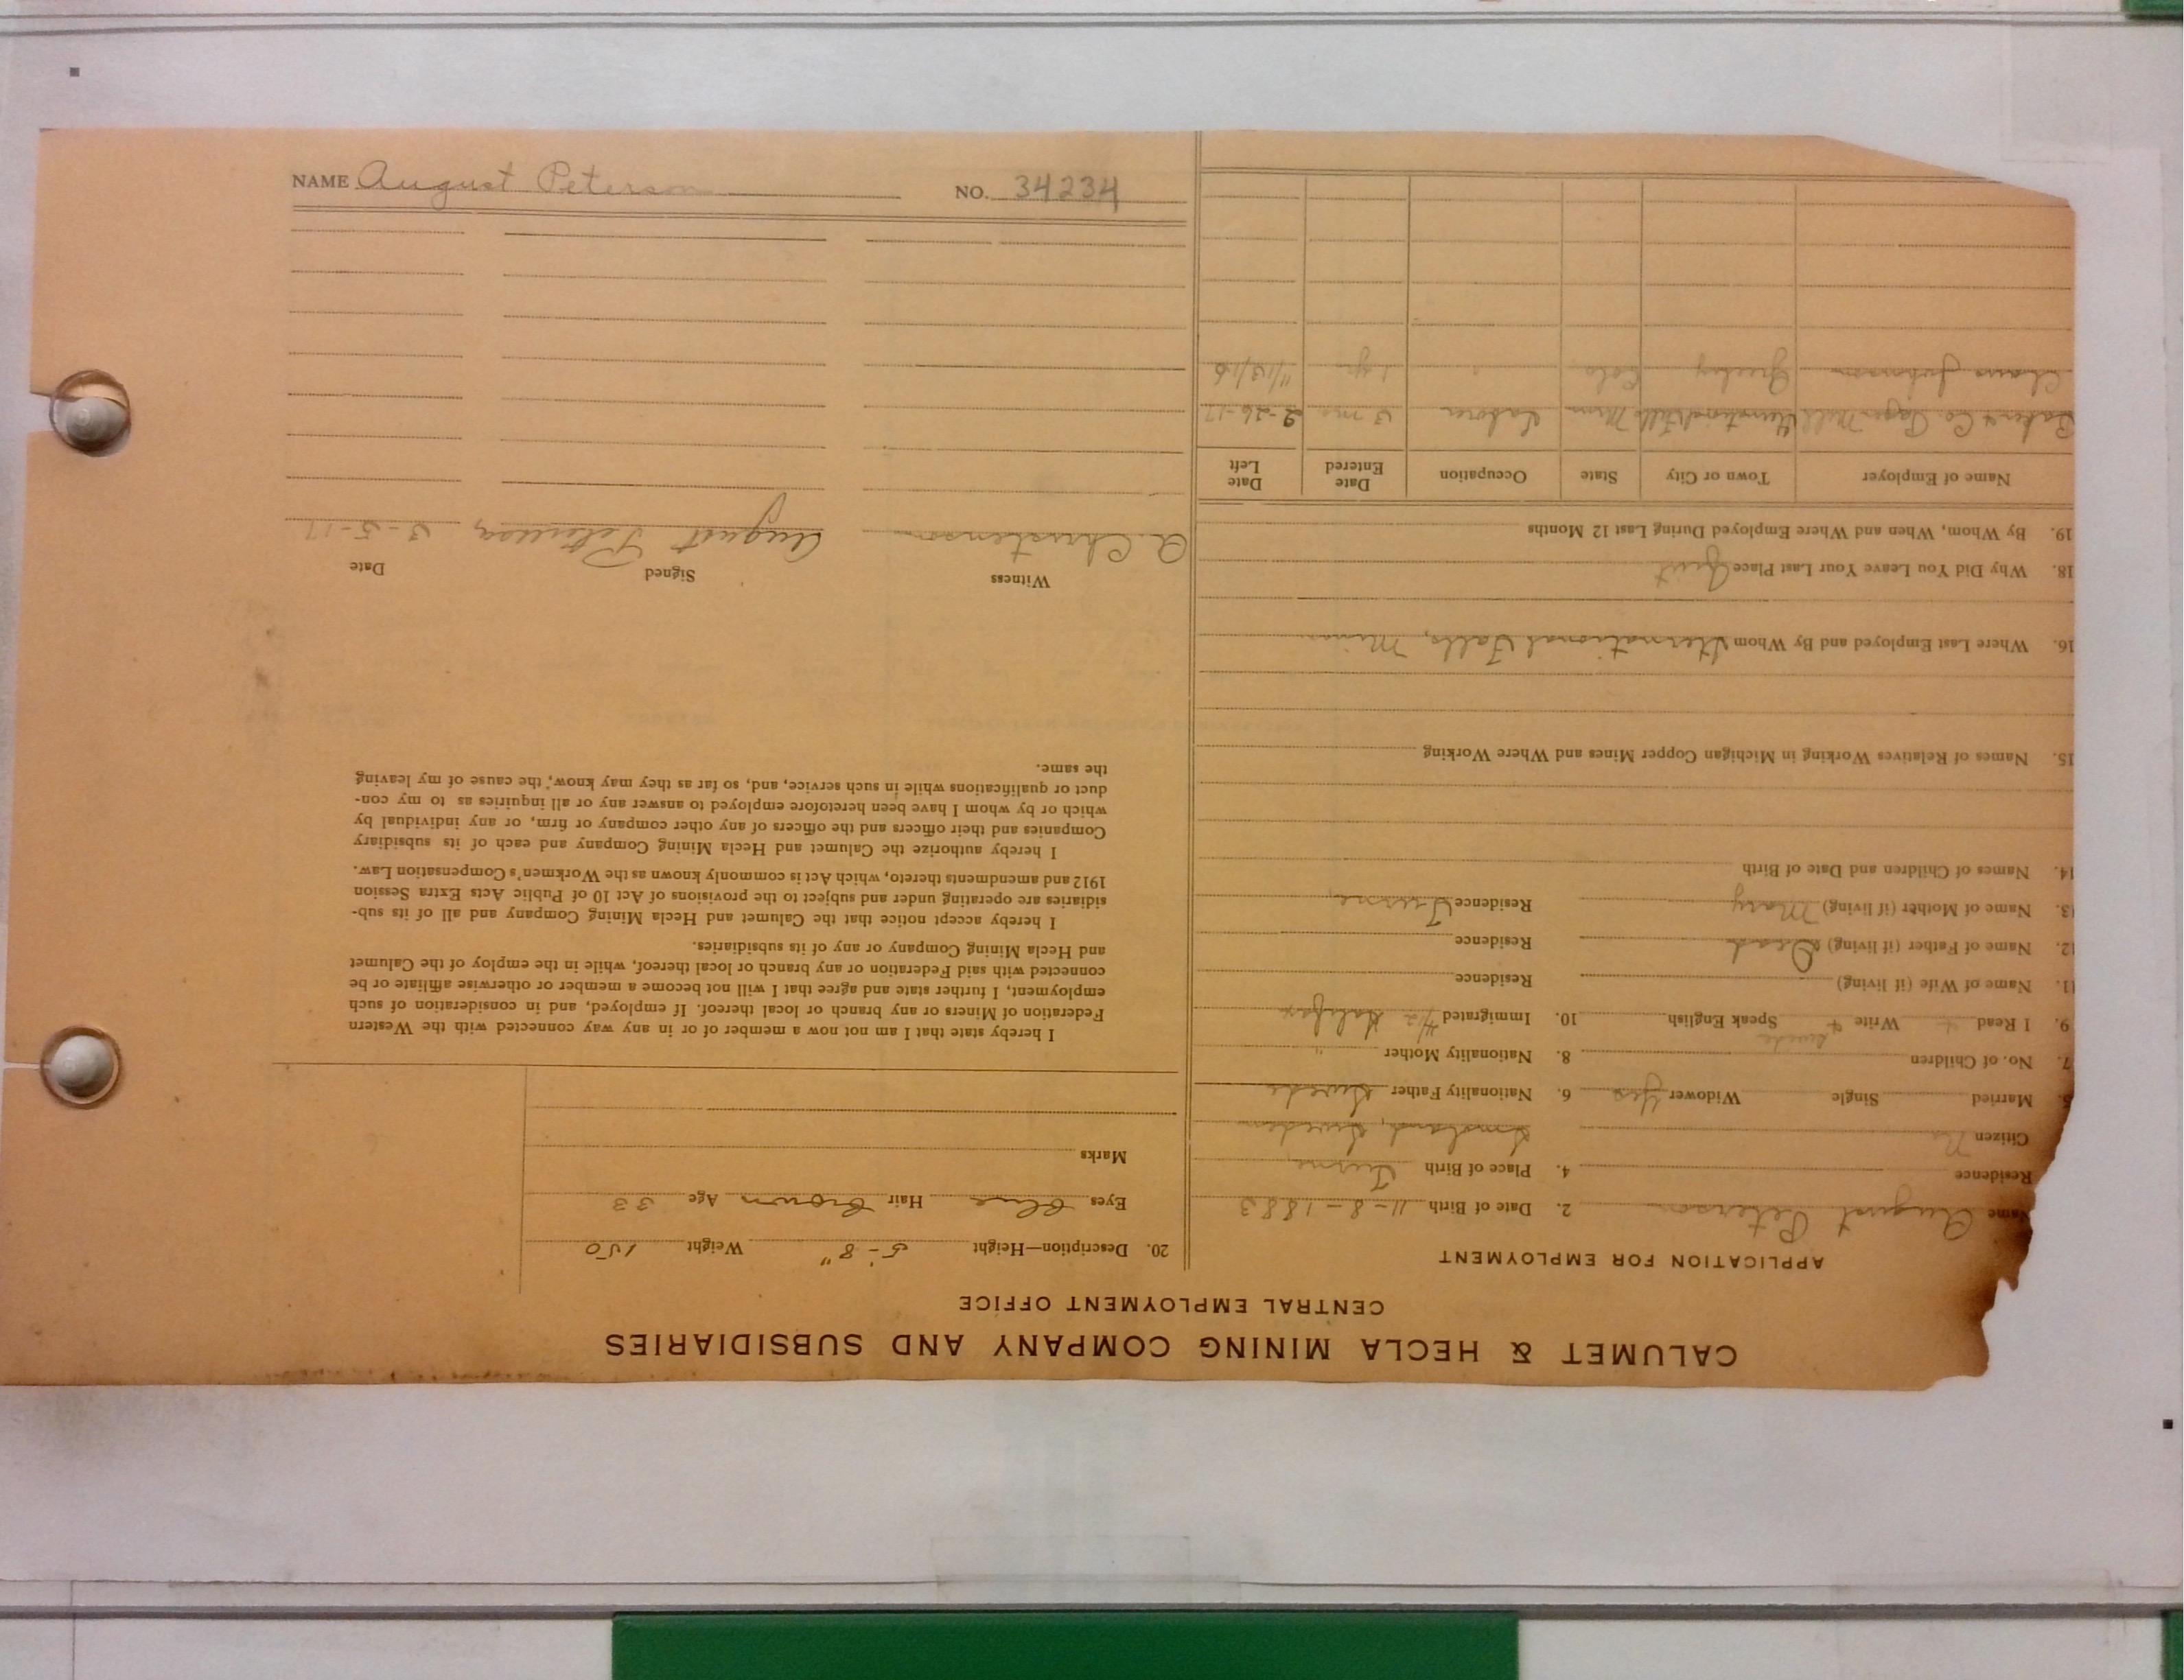 NAME August Peterson NO. 34234
CALUMET & HECLA MINING COMPANY AND SUBSIDIARIES
CENTRAL EMPLOYMENT OFFICE
APPLICATION FOR EMPLOYMENT
Name August Peterson
2. Date of Birth 11-8-1883
Residence
4. Place of Birth
Citizen No
Sweden
5. Married Single Widower Yes
6. Nationality Father Swede
7. No. of Children
8. Nationality Mother "
9. I Read Write Speak English
Swede
10. Immigrated Halifax
11. Name of Wife (if living) Residence
12. Name of Father (if living) Dead Residence
13. Name of Mother (if living) Mary Residence
14. Names of Children and Date of Birth
15. Names of Relatives Working in Michigan Copper Mines and Where Working
16. Where Last Employed and By Whom International Falls, Minn
18. Why Did You Leave Your Last Place Quit
19. By Whom, When and Where Employed During Last 12 Months
Name of Employer Town or City State Occupation Date Entered Date Left
Co. Paper Mill International Falls Minn Laborer 3 mo 2-26-17
Johnson Greeley Colo " 1 yr 11/18/16
20. Description—Height 5'-8" Weight 150
Eyes Blue Hair Brown Age 33
Marks
I hereby state that I am not now a member of or in any way connected with the Western
Federation of Miners or any branch or local thereof. If employed, and in consideration of such
employment, I further state and agree that I will not become a member or otherwise affiliate or be
connected with said Federation or any branch or local thereof, while in the employ of the Calumet
and Hecla Mining Company or any of its subsidiaries.
I hereby accept notice that the Calumet and Hecla Mining Company and all of its sub-
sidiaries are operating under and subject to the provisions of Act 10 of Public Acts Extra Session
1912 and amendments thereto, which Act is commonly known as the Workmen's Compensation Law.
I hereby authorize the Calumet and Hecla Mining Company and each of its subsidiary
Companies and their officers and the officers of any other company or firm, or any individual by
which or by whom I have been heretofore employed to answer any or all inquiries as to my con-
duct or qualifications while in such service, and, so far as they may know, the cause of my leaving
the same.
Witness Signed Date
A. Christenson August Peterson 3-5-17